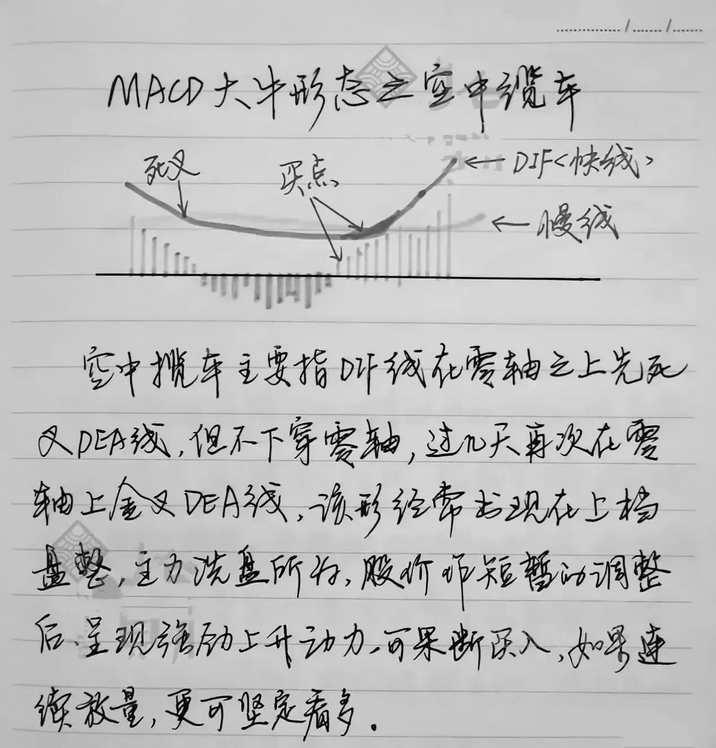 MACD大牛形态之空中缆车
死叉
买点
DIF<快线>
慢线
空中揽车主要指DIF线在零轴之上先死
叉DEA线，但不下穿零轴，过几天再次在零
轴上金叉DEA线，该形经常出现在上档
盘整，主力洗盘所为，股价作短暂的调整
后，呈现强劲上升动力，可果断买入，如果连
续放量，更可坚定看多。